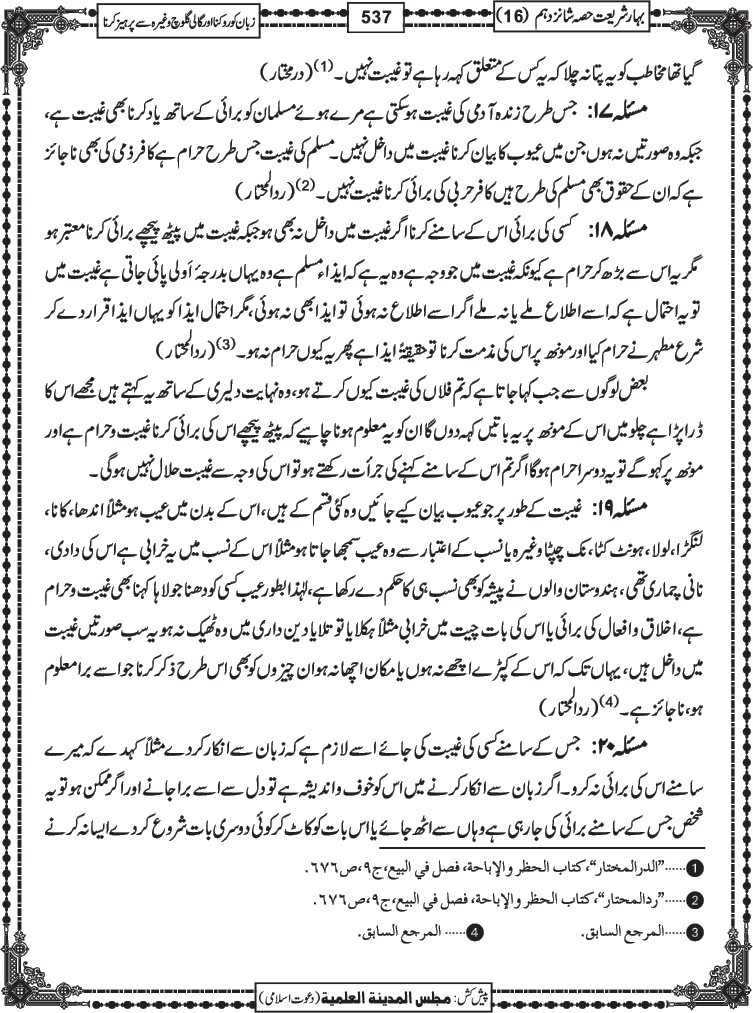 بہارِشریعت حصہ شانزدہم (16)
537
زبان کو روکنا اور گالی گلوچ وغیرہ سے پرہیز کرنا
گیا تھا مخاطب کو یہ پتا نہ چلا کہ یہ کس کے متعلق کہہ رہا ہے تو غیبت نہیں۔(1) (درمختار)
مسئلہ ۱۷: جس طرح زندہ آدمی کی غیبت ہوسکتی ہے مرے ہوئے مسلمان کو برائی کے ساتھ یاد کرنا بھی غیبت ہے،
جبکہ وہ صورتیں نہ ہوں جن میں عیوب کا بیان کرنا غیبت میں داخل نہیں۔ مسلم کی غیبت جس طرح حرام ہے کافر ذمی کی بھی ناجائز
ہے کہ ان کے حقوق بھی مسلم کی طرح ہیں کافر حربی کی برائی کرنا غیبت نہیں۔(2) (ردالمحتار)
مسئلہ ۱۸: کسی کی برائی اس کے سامنے کرنا اگر غیبت میں داخل نہ بھی ہو جبکہ غیبت میں پیٹھ پیچھے برائی کرنا معتبر ہو
مگر یہ اس سے بڑھ کر حرام ہے کیونکہ غیبت میں جو وجہ ہے وہ یہ ہے کہ ایذاء مسلم ہے وہ یہاں بدرجۂ اَولٰی پائی جاتی ہے غیبت میں
تو یہ احتمال ہے کہ اسے اطلاع ملے یا نہ ملے اگر اسے اطلاع نہ ہوئی تو ایذا بھی نہ ہوئی، مگر احتمال ایذا کو یہاں ایذا قرار دے کر
شرع مطہر نے حرام کیا اور مونھ پر اس کی مذمت کرنا تو حقیقۃً ایذا ہے پھر یہ کیوں حرام نہ ہو۔(3) (ردالمحتار)
بعض لوگوں سے جب کہا جاتا ہے کہ تم فلاں کی غیبت کیوں کرتے ہو، وہ نہایت دلیری کے ساتھ یہ کہتے ہیں مجھے اس کا
ڈر اپڑا ہے چلو میں اس کے مونھ پر یہ باتیں کہہ دوں گا ان کو یہ معلوم ہونا چاہیے کہ پیٹھ پیچھے اس کی برائی کرنا غیبت و حرام ہے اور
مونھ پر کہو گے تو یہ دوسرا حرام ہوگا اگر تم اس کے سامنے کہنے کی جرأت رکھتے ہو تو اس کی وجہ سے غیبت حلال نہیں ہوگی۔
مسئلہ ۱۹: غیبت کے طور پر جو عیوب بیان کیے جائیں وہ کئی قسم کے ہیں، اس کے بدن میں عیب ہو مثلاً اندھا، کانا،
لنگڑا، لولا، ہونٹ کٹا، نک چپٹا وغیرہ یا نسب کے اعتبار سے وہ عیب سمجھا جاتا ہو مثلاً اس کے نسب میں یہ خرابی ہے اس کی دادی،
نانی چماری تھی، ہندوستان والوں نے پیشہ کو بھی نسب ہی کا حکم دے رکھا ہے، لہٰذا بطور عیب کسی کو دھنا جولاہا کہنا بھی غیبت و حرام
ہے، اخلاق و افعال کی برائی یا اس کی بات چیت میں خرابی مثلاً ہکلا یا توتلا یا دین داری میں وہ ٹھیک نہ ہو یہ سب صورتیں غیبت
میں داخل ہیں، یہاں تک کہ اس کے کپڑے اچھے نہ ہوں یا مکان اچھا نہ ہو ان چیزوں کو بھی اس طرح ذکر کرنا جو اسے برا معلوم
ہو، ناجائز ہے۔(4) (ردالمحتار)
مسئلہ ۲۰: جس کے سامنے کسی کی غیبت کی جائے اسے لازم ہے کہ زبان سے انکار کردے مثلاً کہدے کہ میرے
سامنے اس کی برائی نہ کرو۔ اگر زبان سے انکار کرنے میں اس کو خوف و اندیشہ ہے تو دل سے اسے برا جانے اور اگر ممکن ہو تو یہ
شخص جس کے سامنے برائی کی جارہی ہے وہاں سے اٹھ جائے یا اس بات کو کاٹ کر کوئی دوسری بات شروع کردے ایسا نہ کرنے
1......"الدرالمختار"، کتاب الحظر والإباحة، فصل في البيع، ج۹، ص۶۷۶.
2......"ردالمحتار"، کتاب الحظر والإباحة، فصل في البيع، ج۹، ص۶۷۶.
3......المرجع السابق. 4......المرجع السابق.
پیش کش: مجلس المدینة العلمیة (دعوت اسلامی)